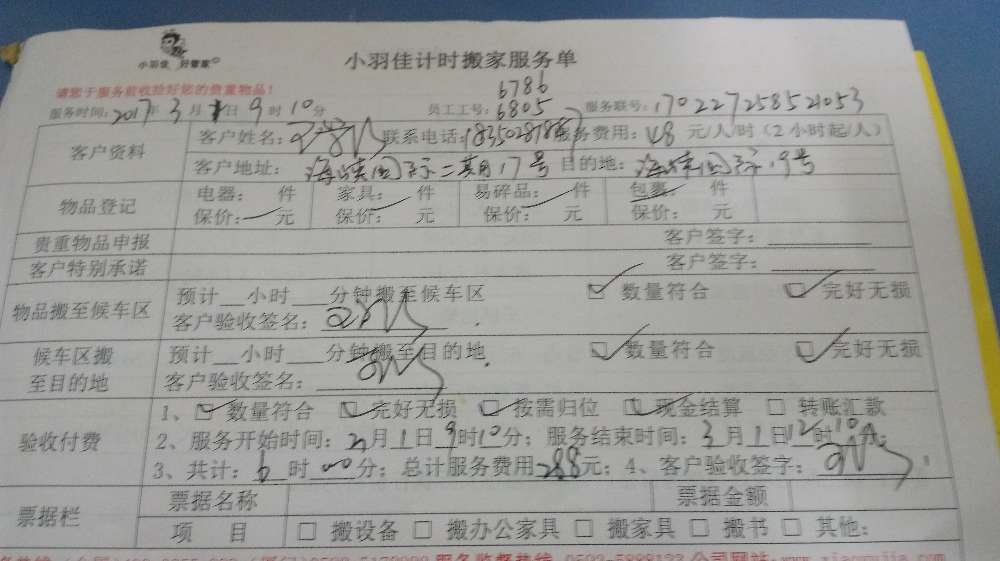 小羽佳 好管家
小羽佳计时搬家服务单
请您于服务前收捡好您的贵重物品！
6786
服务时间：2017年3月1日9时10分 员工工号：6805 服务联号：170227258521053
客户资料 客户姓名： 联系电话： 服务费用：48元/人/时（2小时起/人）
客户地址：海峡国际二期17号 目的地：海峡国际19号
物品登记 电器： 件 家具： 件 易碎品： 件 包裹： 件
保价： 元 保价： 元 保价： 元 保价： 元
贵重物品申报 客户签字：
客户特别承诺 客户签字：
物品搬至候车区 预计__小时___分钟搬至候车区 数量符合 完好无损
客户验收签名：
候车区搬至目的地 预计__小时___分钟搬至目的地 数量符合 完好无损
客户验收签名：
验收付费 1、数量符合 完好无损 按需归位 现金结算 转账汇款
2、服务开始时间：3月1日9时10分；服务结束时间：3月1日12时10
3、共计：6时00分；总计服务费用288元；4、客户验收签字：
票据栏 票据名称 票据金额
项 目 搬设备 搬办公家具 搬家具 搬书 其他：
服务监督热线 0592-5888123 公司网站：www.xiaoyujia.com